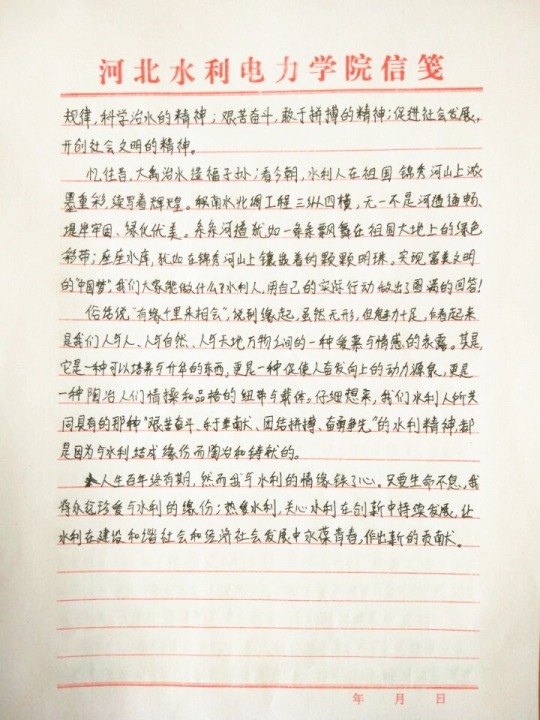 河北水利电力学院信笺
规律，科学治水的精神；艰苦奋斗，敢于拼搏的精神；促进社会发展，
开创社会文明的精神。
忆往昔，大禹治水造福子孙；看今朝，水利人在祖国锦秀河山上浓
墨重彩，续写着辉煌。纵南水北调工程三纵四横，无一不是河道通畅、
堤岸牢固、绿化优美。条条河道犹如一条条飘舞在祖国大地上的绿色
彩带；座座水库，犹如在锦秀河山上镶嵌着的颗颗明珠。实现富美文明
的"中国梦"，我们大家能做什么？水利人，用自己的实际行动做出了圆满的回答！
俗话说"有缘千里来相会"，说到缘起，虽然无形，但魅力十足，在看起来
是我们人与人、人与自然、人与天地万物之间的一种爱慕与情感的表露。其是，
它是一种可以培养与升华的东西，更是一种促使人奋发向上的动力源泉，更是
一种陶冶人们情操和品格的纽带与载体。仔细想来，我们水利人所共
同具有的那种"艰苦奋斗、乐于奉献、团结拼搏、奋勇争先"的水利精神都
是因为与水利结成缘份而陶冶和铸献的。
人生百年终有期，然而我与水利的情缘铁了心。只要生命不息，我
将永远珍爱与水利的缘份；热爱水利，关心水利在创新中持续发展，让
水利在建设和谐社会和经济社会发展中永葆青春，作出新的贡献。
年 月 日